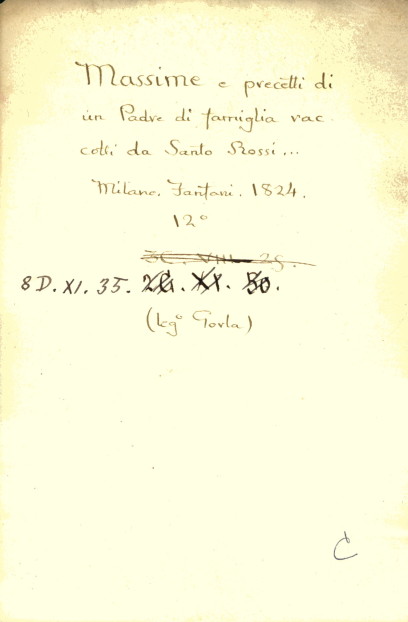 Massime e precetti di
un Padre di famiglia rac-
colti da Santo Rossi...
Milano. Fanfani. 1824.
12°
3C. VIII. 25.
8 D. XI. 35. 2G. XX. 30.
(Lg° Gorla)
C